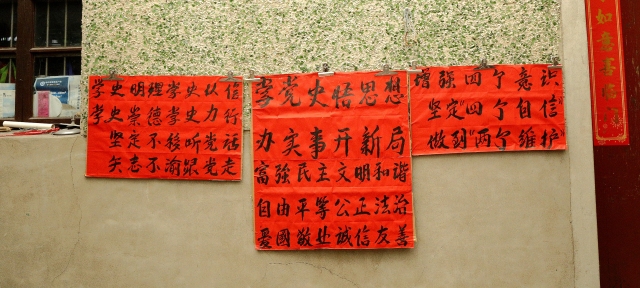 学史明理学史以信
学史崇德学史力行
坚定不移听党话
矢志不渝跟党走
学党史悟思想
办实事开新局
富强民主文明和谐
自由平等公正法治
爱国敬业诚信友善
增强四个意识
坚定"四个自信"
做到"两个维护"
如意